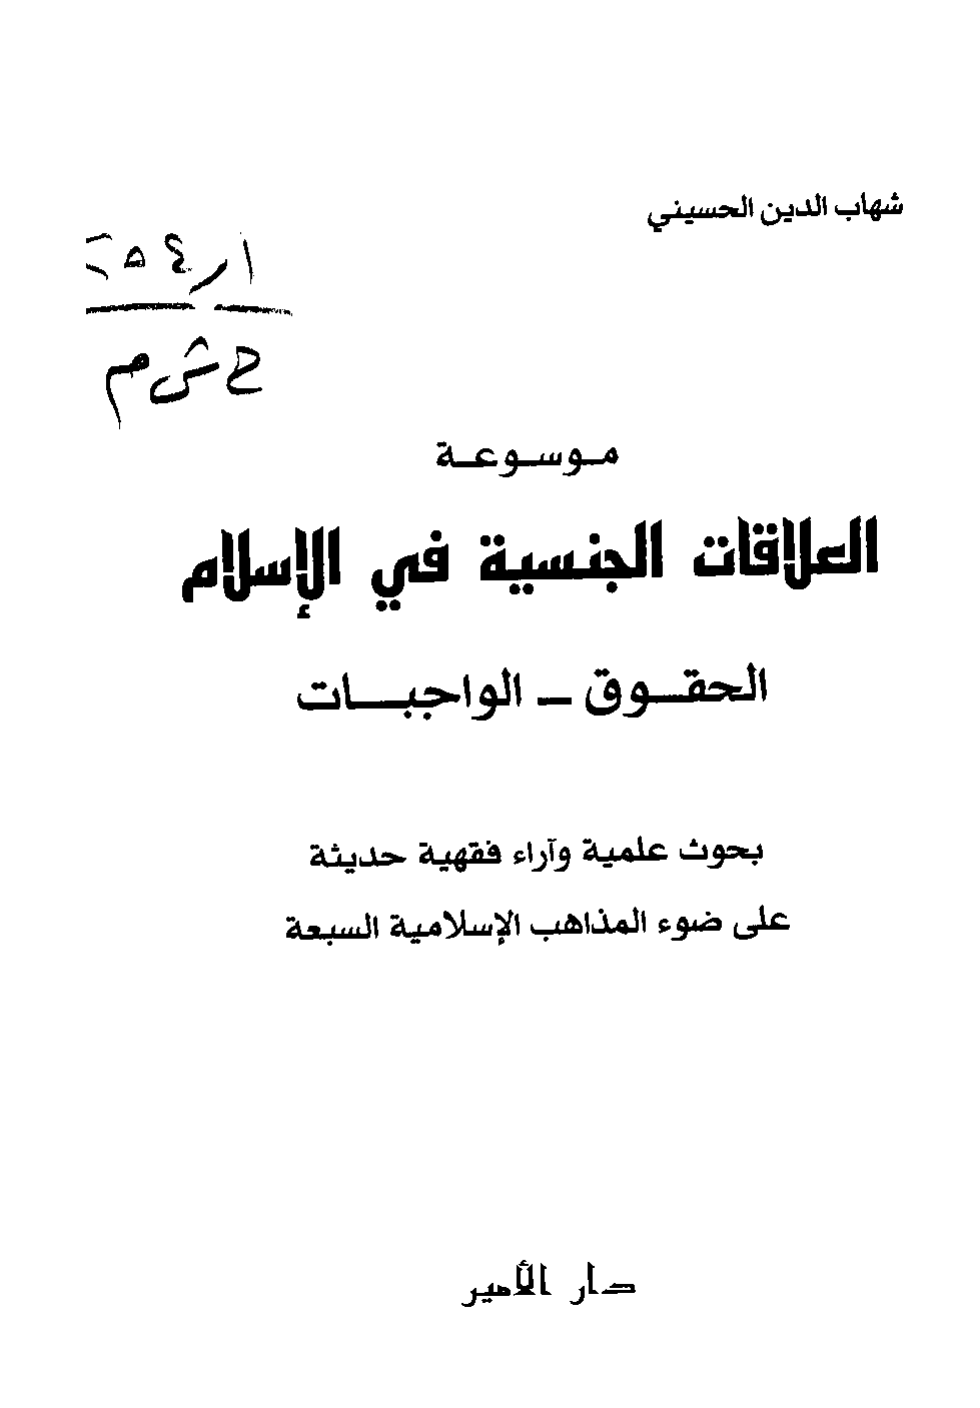 شهاب الدين الحسيني
ح ش م
موسوعة
العلاقات الجنسية في الإسلام
الحقوق - الواجبات
بحوث علمية وآراء فقهية حديثة
على ضوء المذاهب الإسلامية السبعة
دار الأمير